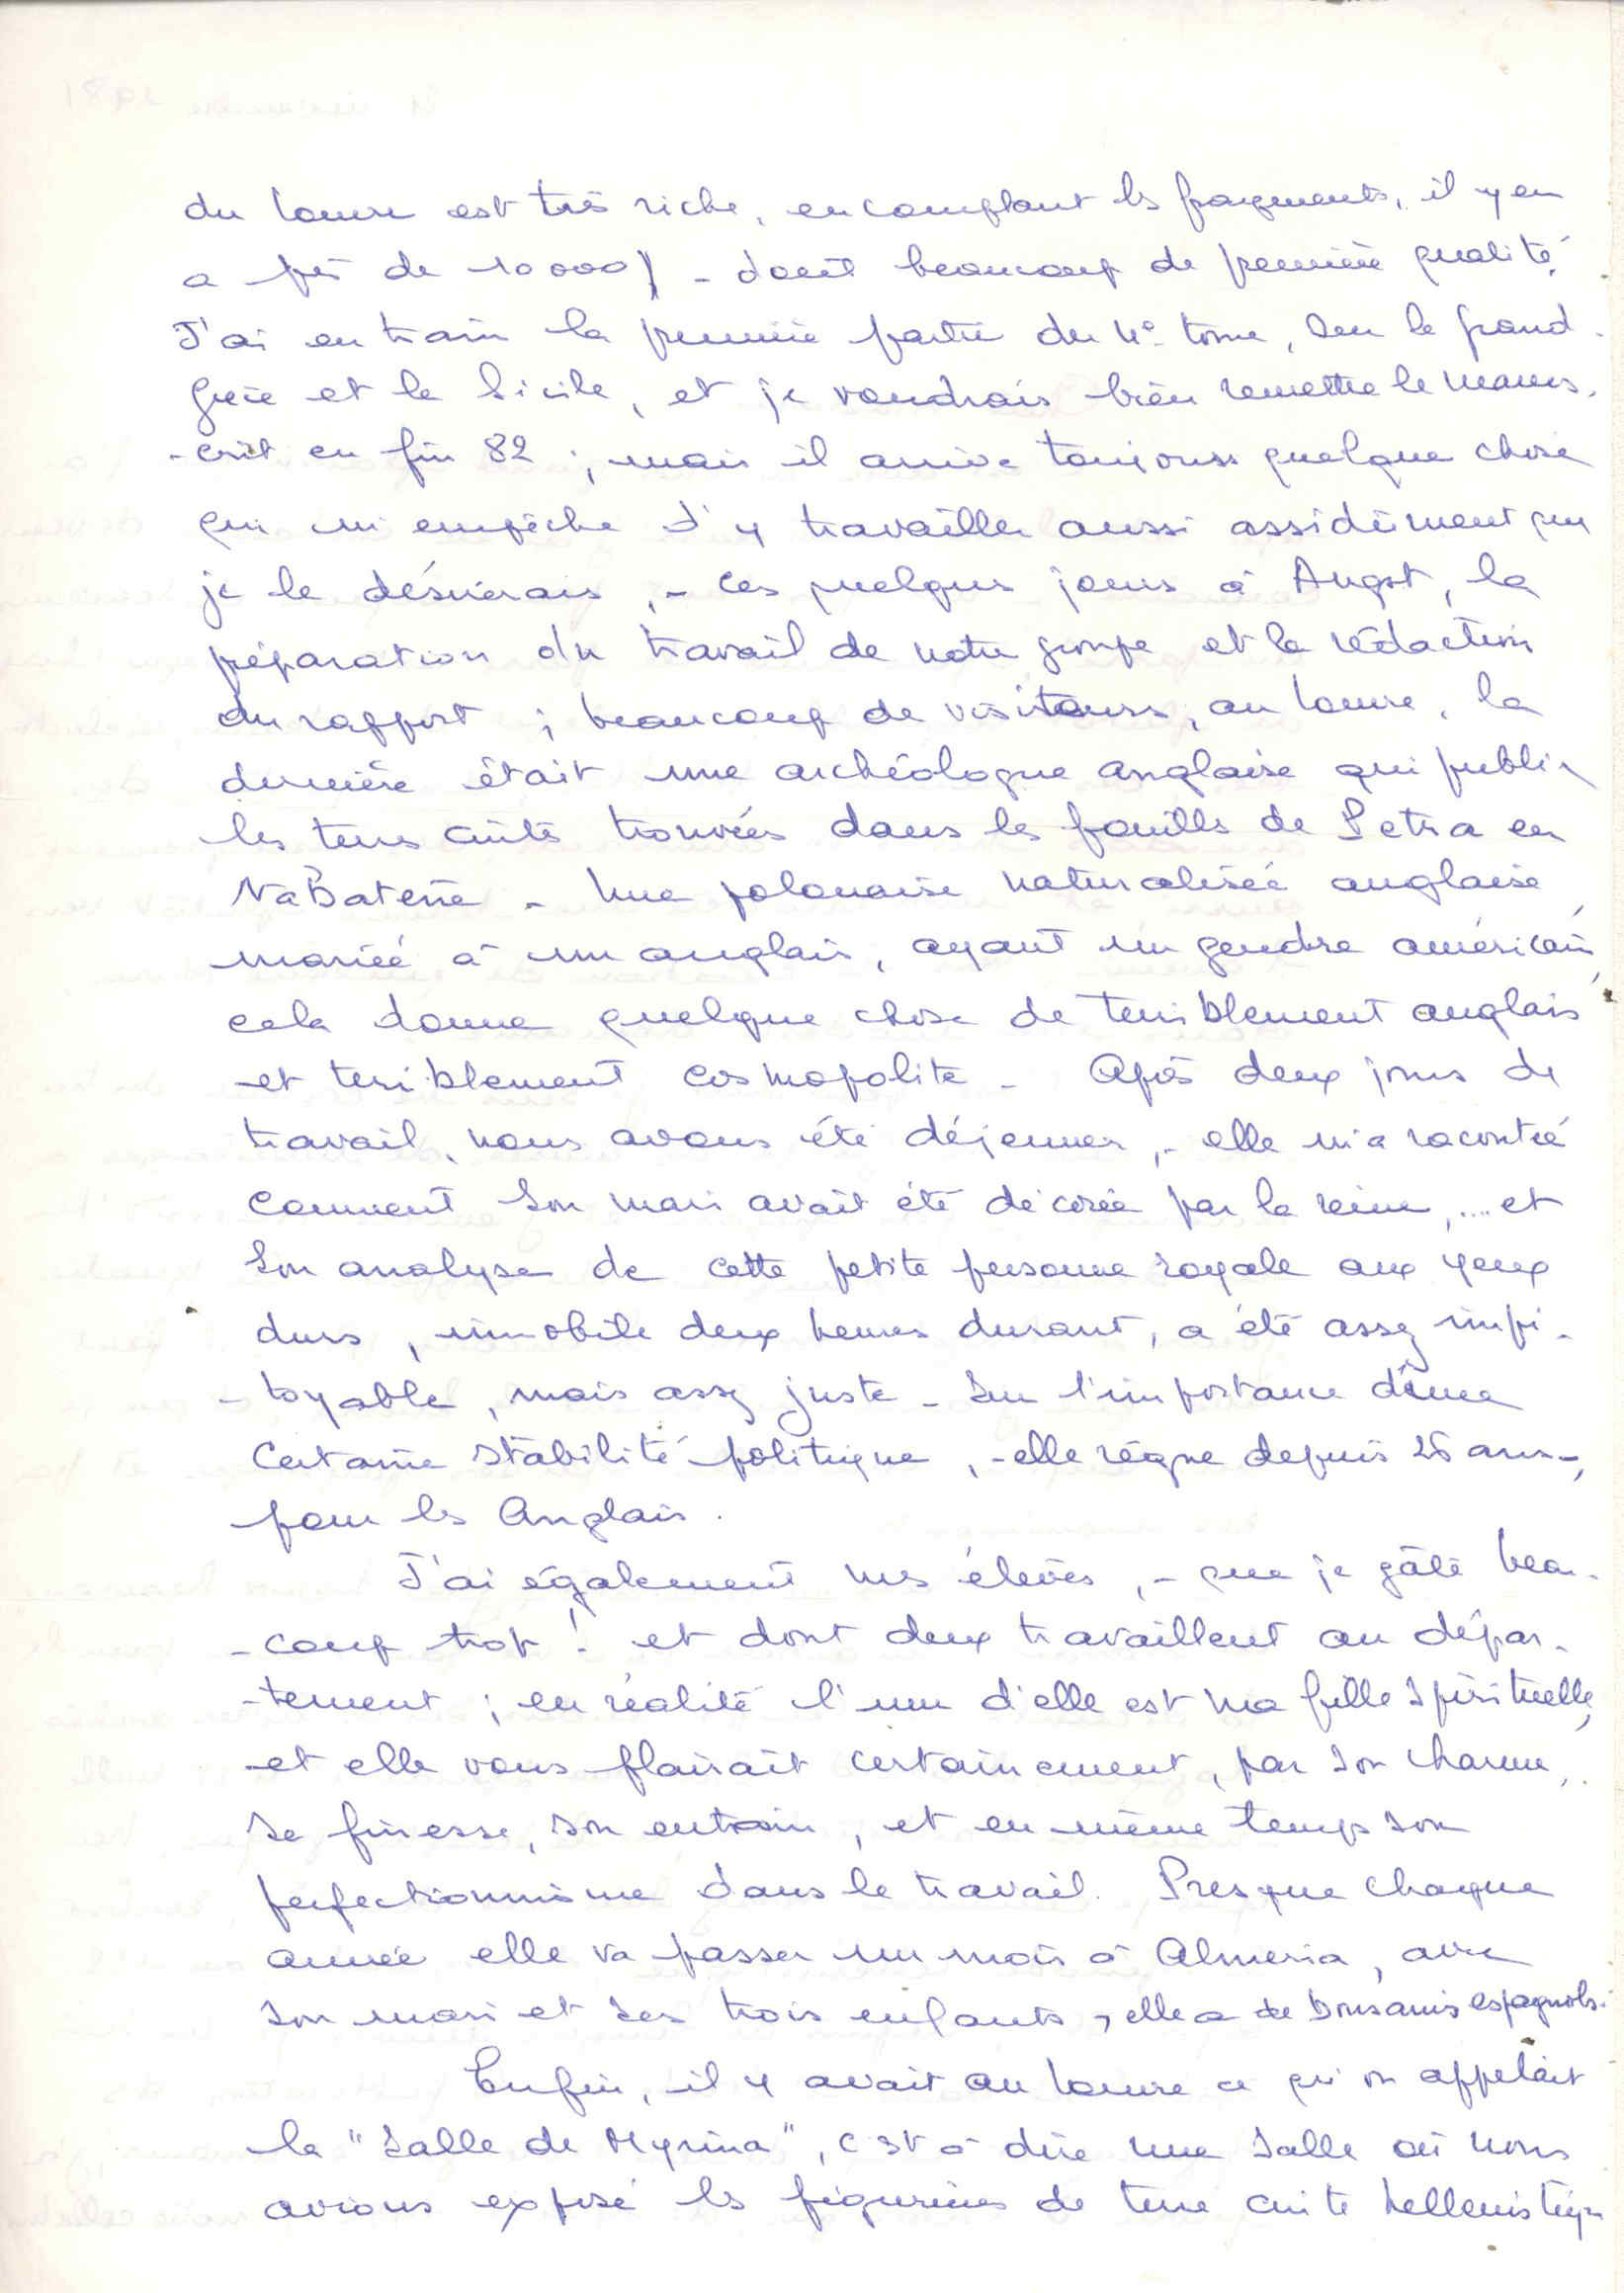 du Louvre est très riche, en comptant les fragments, il y en
a près de 10 000) - dont beaucoup de première qualité.
J'ai en train la première partie du 4e tome, sur la grand
Grèce et la Sicile, et je voudrais bien remettre le manus-
-crit en fin 82 ; mais il arrive toujours quelque chose
qui m'empêche d'y travailler aussi assidûment que
je le désirerais, - ces quelques jours à Augst, la
préparation du travail de notre groupe et la rédaction
du rapport ; beaucoup de visiteurs, au Louvre, la
dernière était une archéologue anglaise qui publie
les terres cuites trouvées dans les fouilles de Petra en
NaBatène - Une polonaise naturalisée anglaise,
mariée à un anglais, ayant un gendre américain,
cela donne quelque chose de terriblement anglais
et terriblement cosmopolite - Après deux jours de
travail, nous avons été déjeuner, - elle m'a racontée
comment son mari avait été décorée par la reine, .... et
son analyse de cette petite personne royale aux yeux
durs, immobile deux heures durant, a été assez impi-
-toyable, mais assez juste - sur l'importance d'une
certaine stabilité politique, - elle règne depuis 26 ans -,
pour les Anglais.
J'ai également mes élèves, - que je gâte beau-
-coup trop ! et dont deux travaillent au dépar-
-tement ; en réalité l'une d'elle est ma fille spirituelle,
et elle vous plairait certainement, par son charme,
sa finesse, son entrain, et en même temps son
perfectionnisme dans le travail. Presque chaque
année elle va passer un mois à Almeria, avec
son mari et ses trois enfants, elle a de bons amis espagnols.
Enfin, il y avait au Louvre ce qu'on appelait
la "Salle de Myrina", c'est à dire une salle où nous
avions exposé les figurines de terre cuite hellenistique